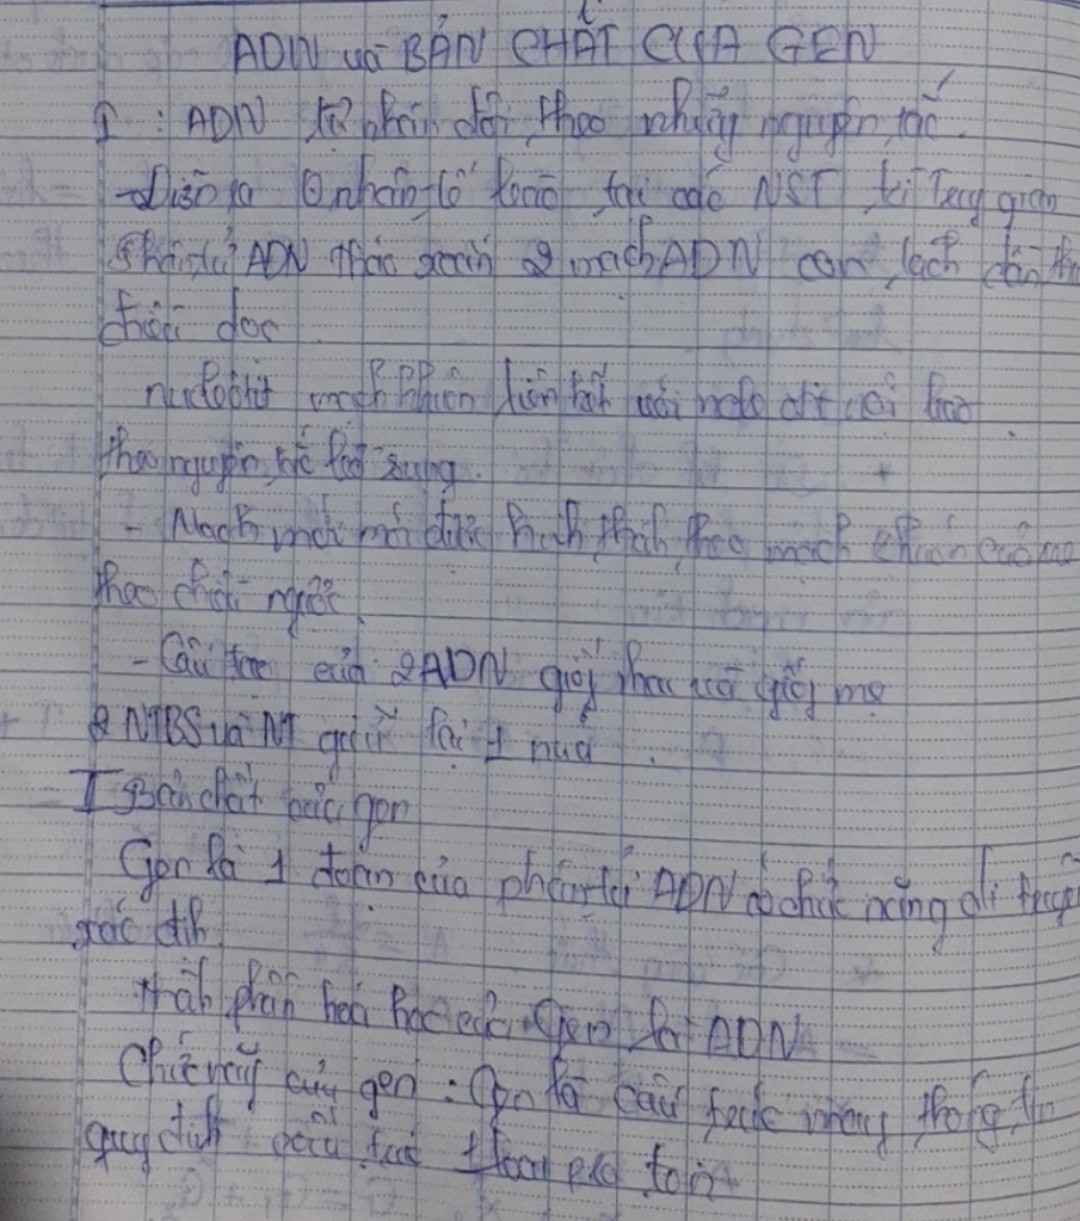 ADN và BẢN CHẤT CỦA GEN
I : ADN tự nhân đôi theo những nguyên tắc.
- Diễn ra nhân tế bào tại các NST kì Trung gian
Phân tử ADN tháo xoắn 2 mạch ADN con tách dần
chiều dọc
nucleotit mạch khuôn liên kết với
theo nguyên tắc bổ sung.
- Mạch mới được hình thành theo mạch khuôn của mẹ
theo chiều ngược
- Cấu trúc của 2 ADN giống nhau và giống mẹ
NTBS và NT giữ lại 1 nửa.
I Bản chất của gen
Gen là 1 đoạn của phân tử ADN có chức năng di truyền
xác định
thành phần hoá học của Gen là ADN
Chức năng của gen : Gen là cấu trúc mang thông tin
quy định cấu trúc